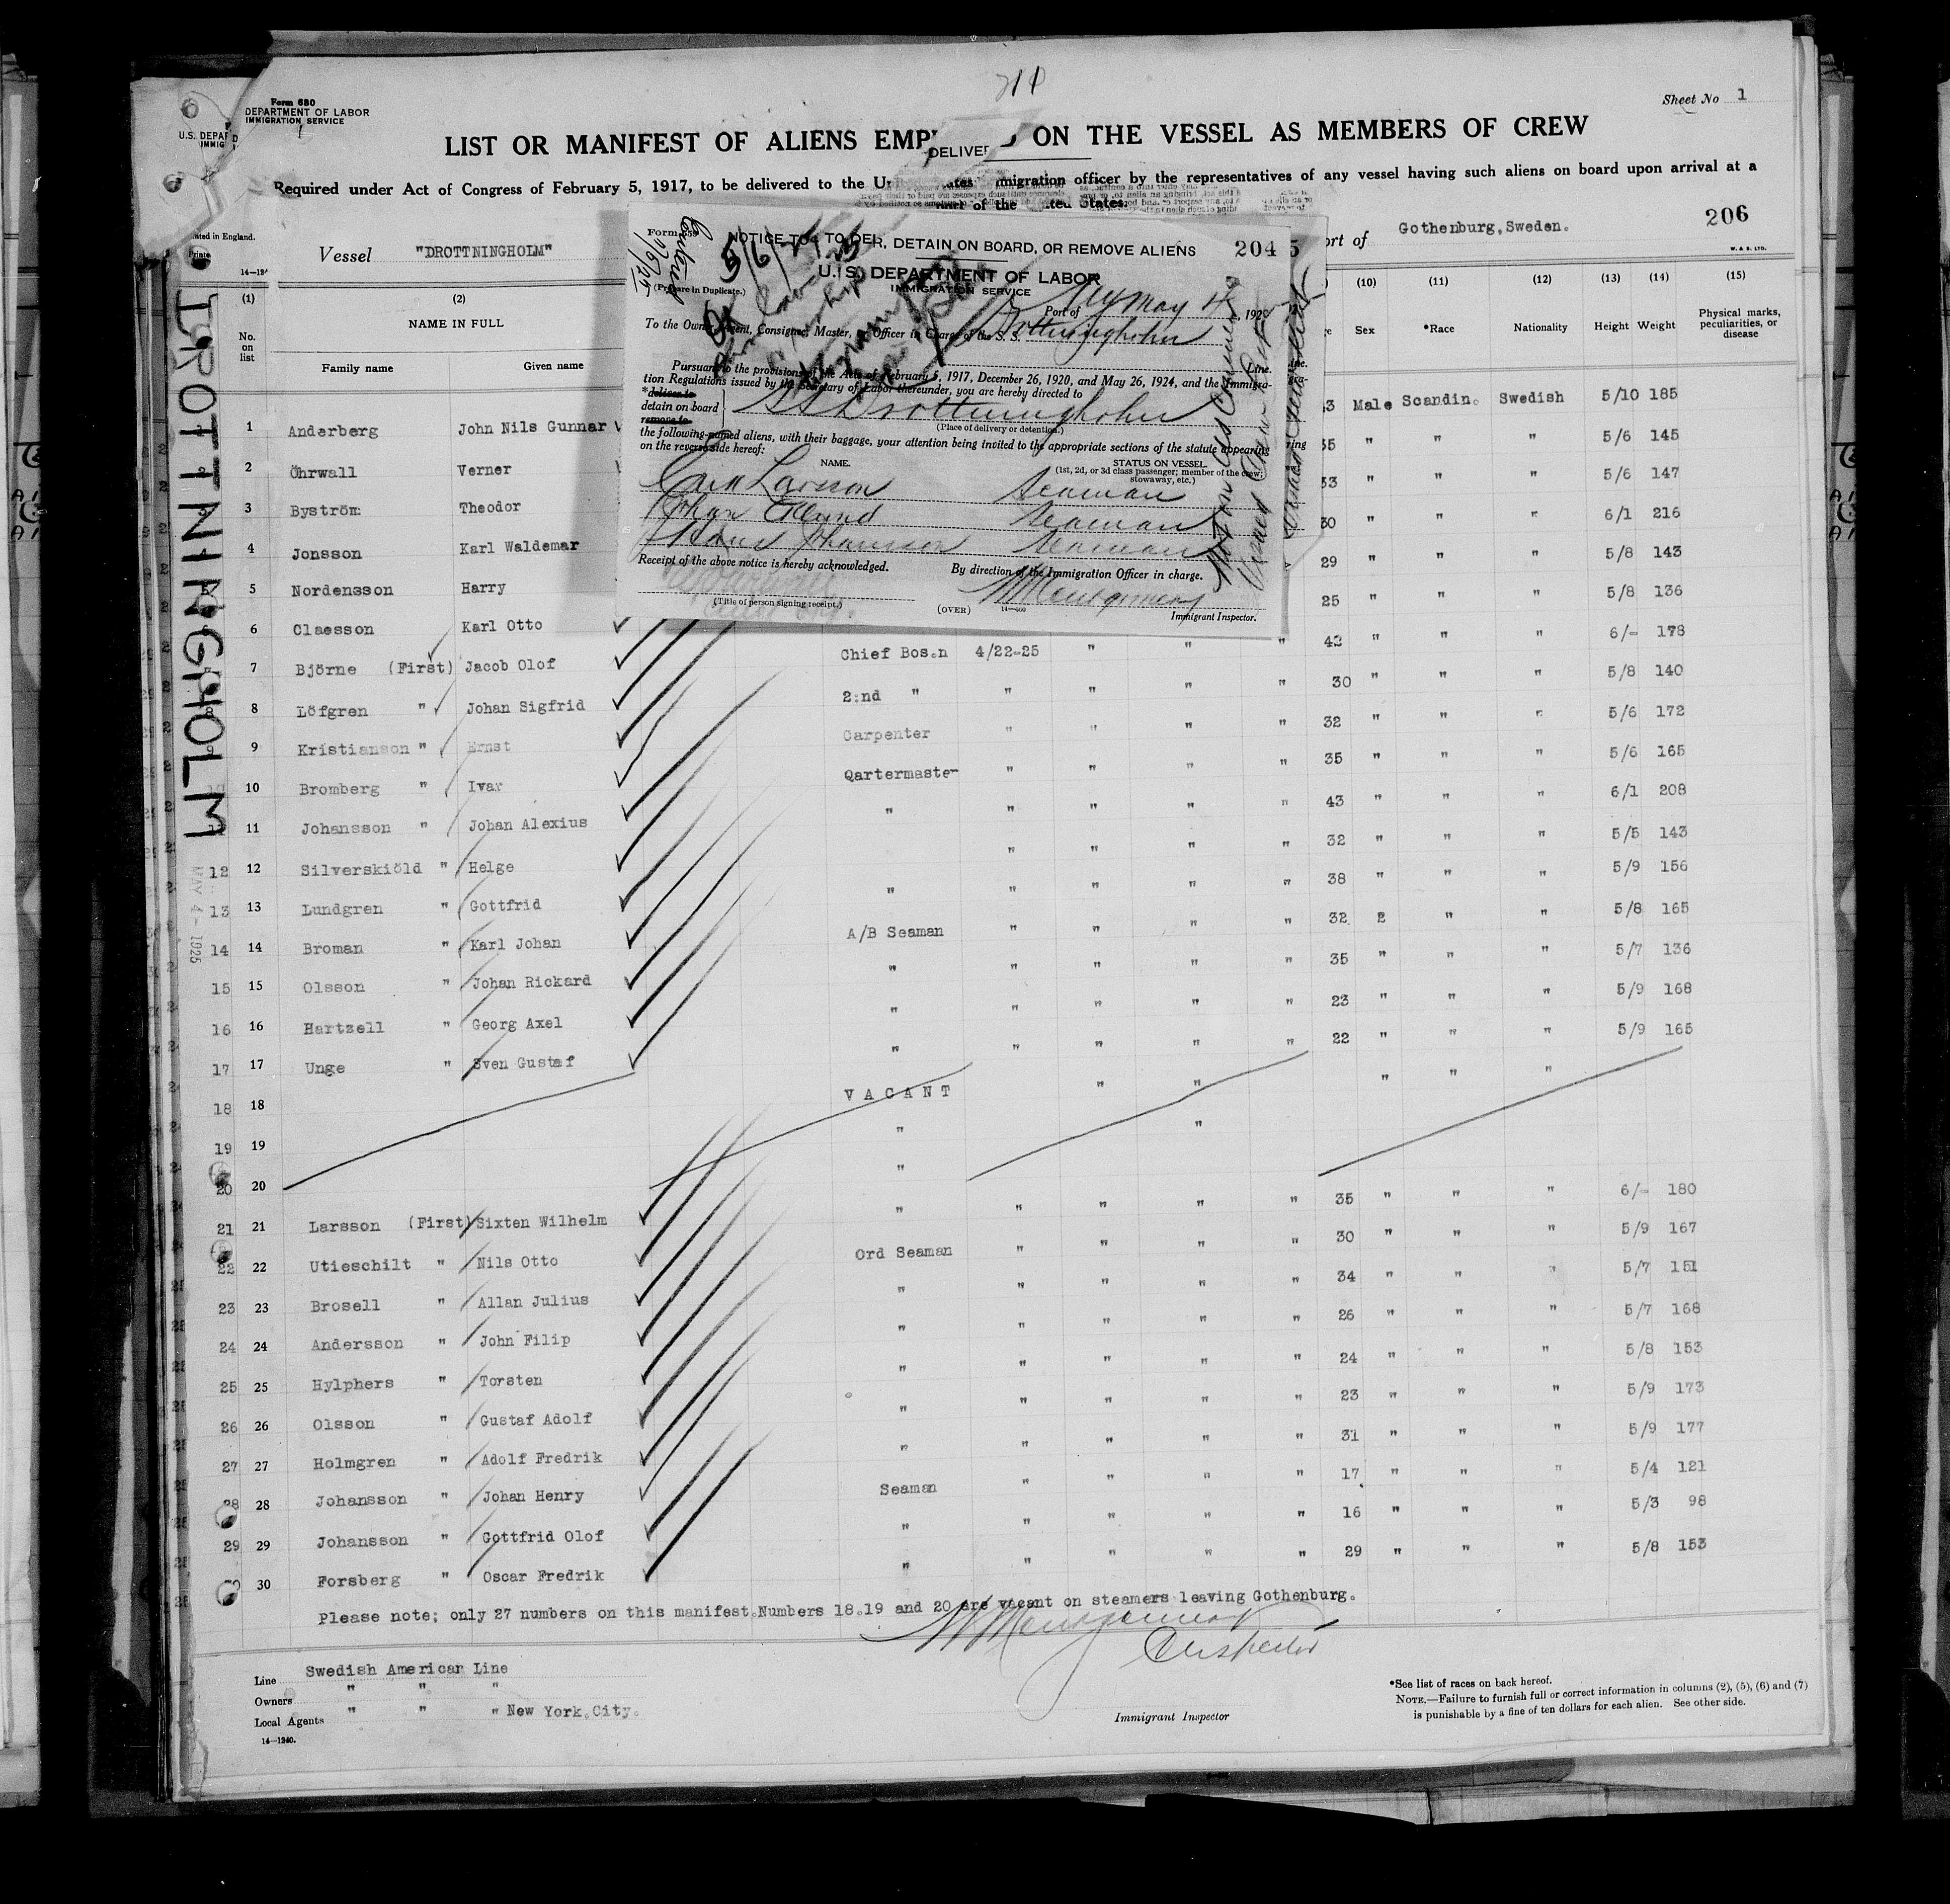 211
Form 680
DEPARTMENT OF LABOR
IMMIGRATION SERVICE
Sheet No 1
LIST OR MANIFEST OF ALIENS EMP ON THE VESSEL AS MEMBERS OF CREW
DELIVER
Required under Act of Congress of February 5, 1917, to be delivered to the Un ates migration officer by the representatives of any vessel having such aliens on board upon arrival at a
port of the United States.
Printed in England.
Vessel "DROTTNINGHOLM"
ort of Gothenburg, Sweden.
206
W. & S. LTD.
DROTTNINGHOLM
MAY 4- 1925
NOTICE TO DER, DETAIN ON BOARD, OR REMOVE ALIENS 204
U.S. DEPARTMENT OF LABOR
IMMIGRATION SERVICE
(Prepare in Duplicate.)
Port of NY May 4, 192
To the Owner, Agent, Consignee, Master, Officer in Charge of the S. S. Drottningholm
Line.
Pursuant to the provisions of the Acts of February 5, 1917, December 26, 1920, and May 26, 1924, and the Immigra-
tion Regulations issued by the Secretary of Labor thereunder, you are hereby directed to
*deliver to
detain on board SS Drottningholm
remove to
(Place of delivery or detention.)
the following-named aliens, with their baggage, your attention being invited to the appropriate sections of the statute appearing
on the reverse side hereof:
NAME. STATUS ON VESSEL.
(1st, 2d, or 3d class passenger; member of the crew;
stowaway, etc.)
Larsson Seaman
Johan Seaman
Seaman
Receipt of the above notice is hereby acknowledged. By direction of the Immigration Officer in charge.
W Montgomery
(Title of person signing receipt.) (OVER) 14-600 Immigrant Inspector.
(1) (2) (10) (11) (12) (13) (14) (15)
No. on list NAME IN FULL Sex *Race Nationality Height Weight Physical marks, peculiarities, or disease
Family name Given name
1 Anderberg John Nils Gunnar Male Scandin. Swedish 5/10 185
2 Öhrwall Verner 35 " " " 5/6 145
3 Byström Theodor 33 " " " 5/6 147
4 Jonsson Karl Waldemar 30 " " " 6/1 216
5 Nordensson Harry 29 " " " 5/8 143
6 Claesson Karl Otto 25 " " " 5/8 136
7 Björne (First) Jacob Olof Chief Bos.n 4/22-25 " " " 42 " " " 6/- 178
8 Löfgren " Johan Sigfrid 2:nd " " " " " 30 " " " 5/8 140
9 Kristianson " Ernst Carpenter " " " " 32 " " " 5/6 172
10 Bromberg " Ivar Qartermaster " " " " 35 " " " 5/6 165
11 Johansson " Johan Alexius " " " " " 43 " " " 6/1 208
12 Silverskiöld " Helge " " " " 32 " " " 5/5 143
13 Lundgren " Gottfrid " " " " " 38 " " " 5/9 156
14 Broman " Karl Johan A/B Seaman " " " " 32 2 " " 5/8 165
15 Olsson " Johan Rickard " " " " " 35 " " " 5/7 136
16 Hartzell " Georg Axel " " " " " 23 " " " 5/9 168
17 Unge " Sven Gustaf " " " " " 22 " " " 5/9 165
18 VACANT " " " " "
19 " "
20 "
21 Larsson (First) Sixten Wilhelm " " " " " 35 " " " 6/- 180
22 Utieschilt " Nils Otto Ord Seaman " " " " 30 " " " 5/9 167
23 Brosell " Allan Julius " " " " " 34 " " " 5/7 151
24 Andersson " John Filip " " " " " 26 " " " 5/7 168
25 Hylphers " Torsten " " " " " 24 " " " 5/8 153
26 Olsson " Gustaf Adolf " " " " " 23 " " " 5/9 173
27 Holmgren " Adolf Fredrik " " " " " 31 " " " 5/9 177
28 Johansson " Johan Henry Seaman " " " " 17 " " " 5/4 121
29 Johansson " Gottfrid Olof " " " " " 16 " " " 5/3 98
30 Forsberg " Oscar Fredrik " " " " " 29 " " " 5/8 153
Please note; only 27 numbers on this manifest.Numbers 18.19 and 20 are vacant on steamers leaving Gothenburg.
W Montgomery
Inspector
Line Swedish American Line
Owners " " "
Local Agents " " " New York.City.
14-1240.
Immigrant Inspector
*See list of races on back hereof.
NOTE.—Failure to furnish full or correct information in columns (2), (5), (6) and (7)
is punishable by a fine of ten dollars for each alien. See other side.